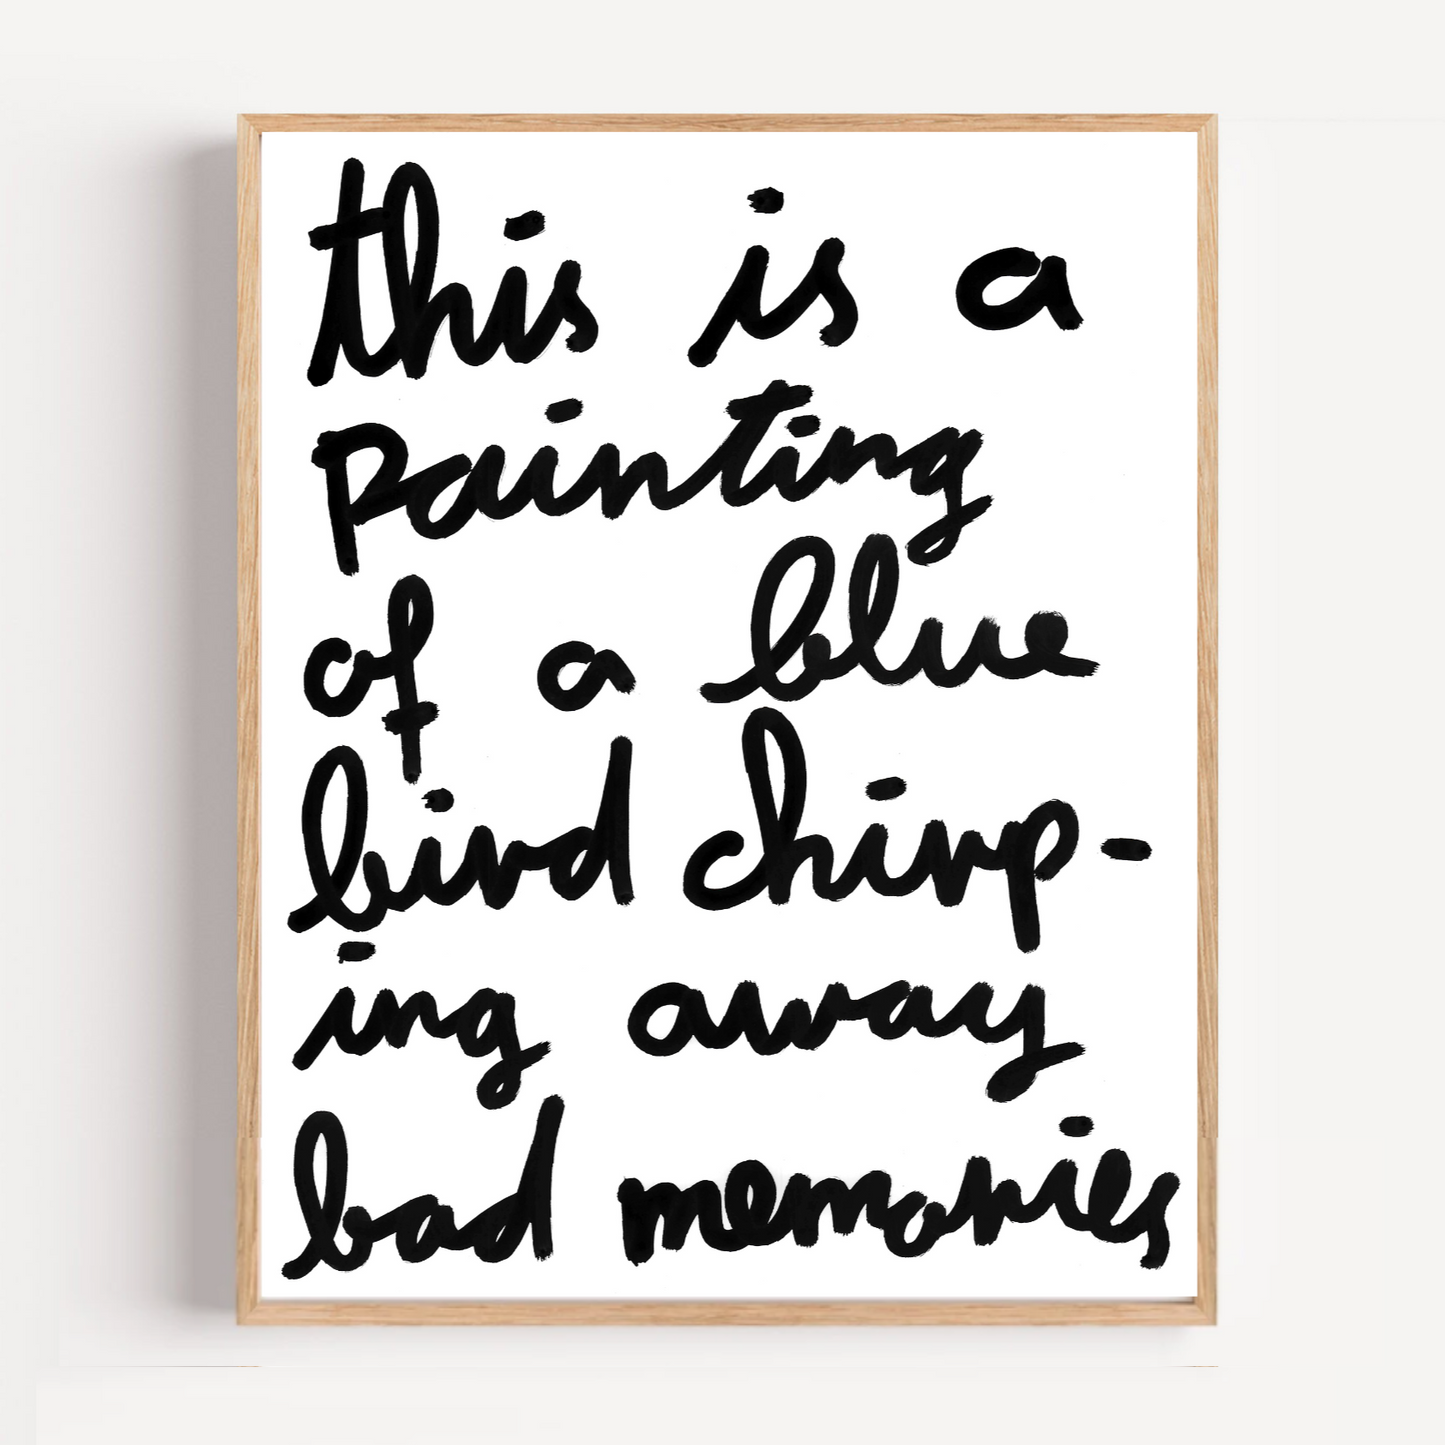 this is a
painting
of a blue
bird chirp-
ing away
bad memories